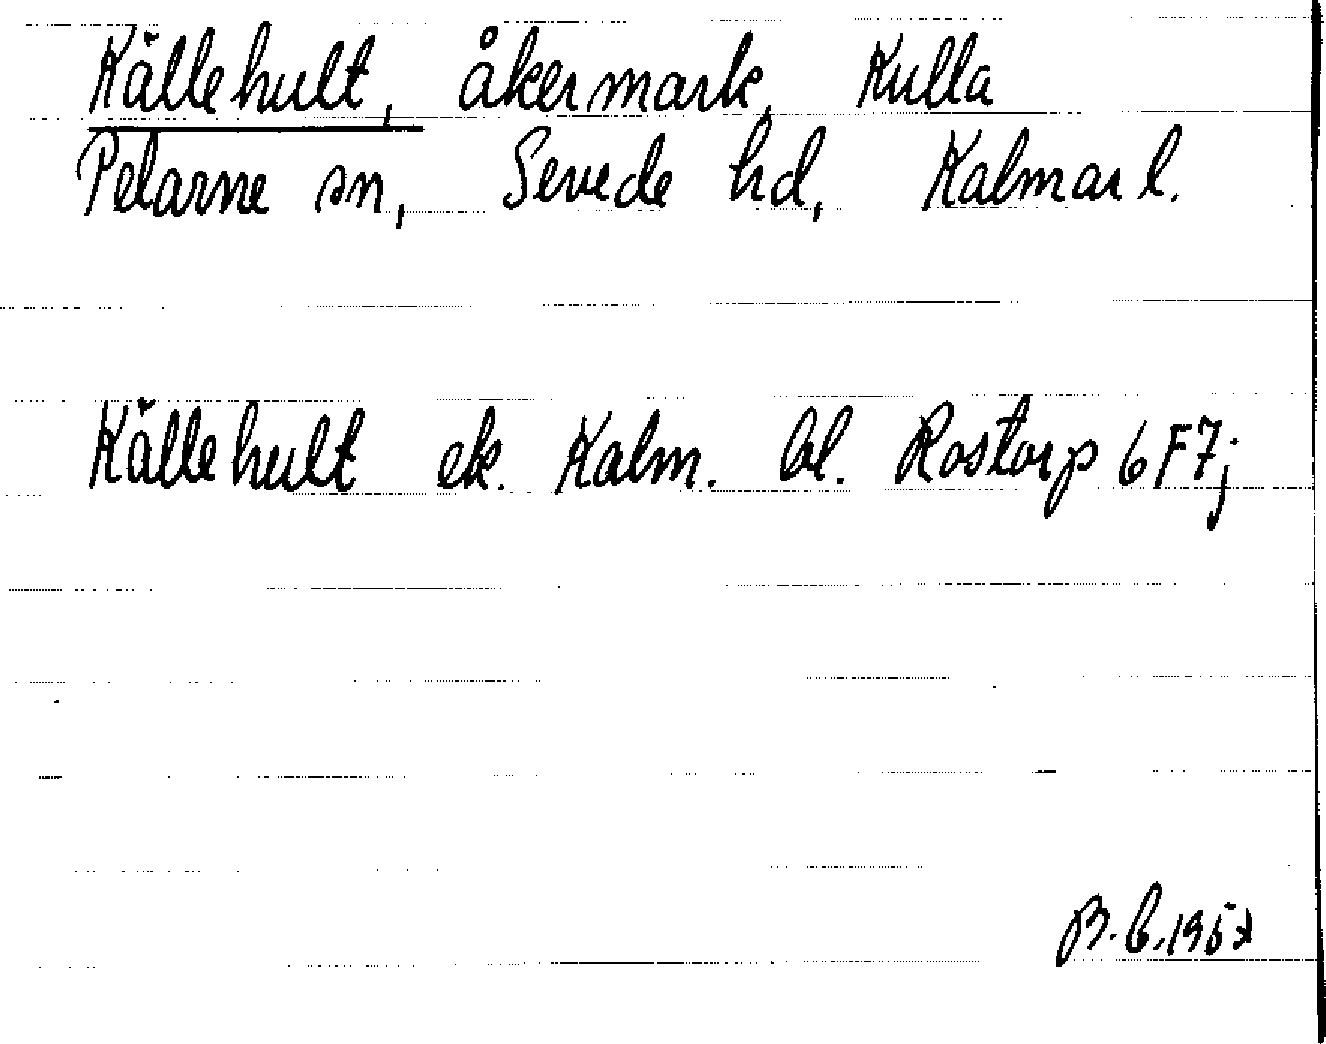 Källehult, åkermark, Kulla
Pelarne sn, Sevede hd, Kalmar l.
Källehult ek. Kalm. bl. Rostorp 6F7j